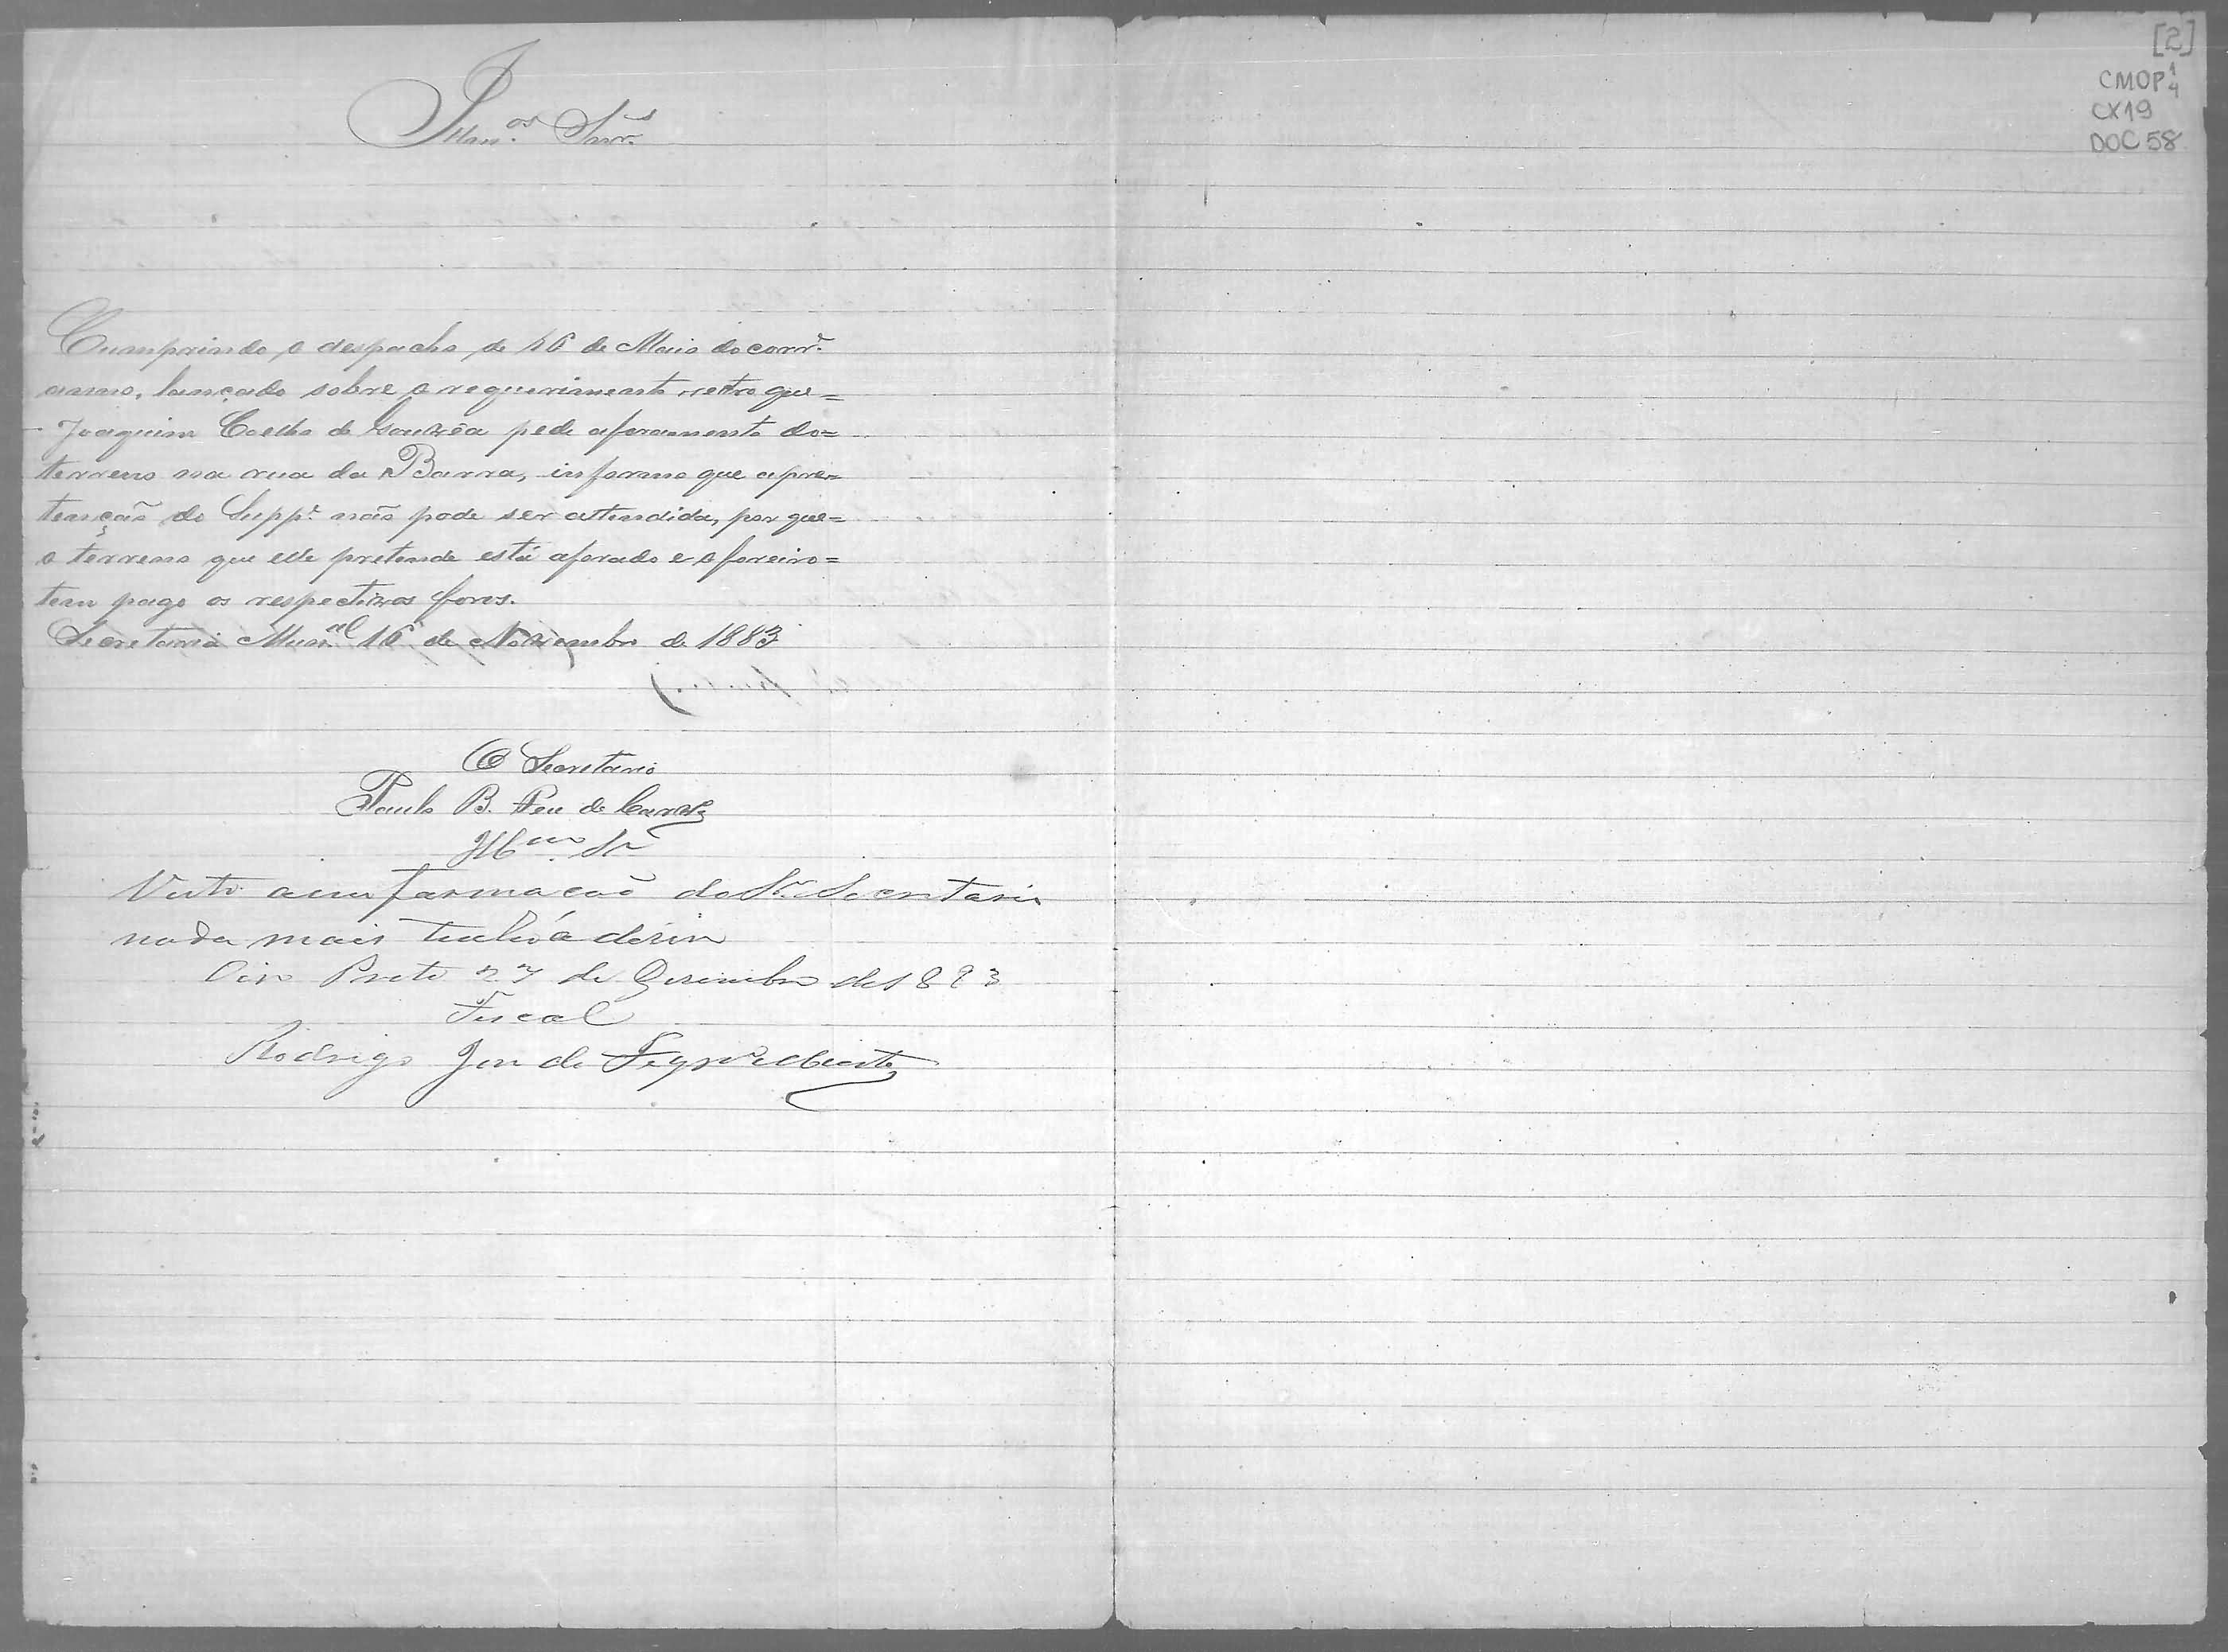 [2]
CMOP 1/4
CX19
DOC 58
Illmos. Snrs.
Cumprindo o despacho de 16 de Maio do corre.
anno, lançado sobre o requerimento retro que=
Joaquim Coelho de Gouvêa pede aforamento do=
terreno na rua da Barra, informo que a pre=
tenção do Suppe. não pode ser attendida, por que=
o terreno que elle pretende está aforado e o foreiro=
tem pago os respectivos foros.
Secretaria Munal. 16 de Novembro de 1883
O Secretario
Paulo B. Feu de Carvo.
Illmo. Sr.
Visto a imformação do Sr. Secretario
nada mais tenho á dizer
Oiro Preto 27 de Dezembro de 1883
Fiscal
Rodrigo José de